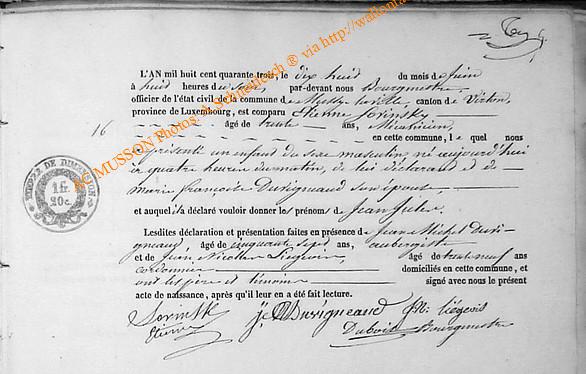 L'AN mil huit cent quarante trois, le dix huit du mois de Juin
à huit heures du soir, par-devant nous Bourgmestre
officier de l'état civil de la commune de Mussy la ville canton de Virton,
province de Luxembourg, est comparu Etienne Sorinsky
16 âgé de trente ans, Musicien,
en cette commune, lequel nous
a présenté un enfant du sexe masculin né aujourd'hui
à quatre heures du matin, de lui déclarant et de
marie françoise Duvigneaud son épouse
et auquel il a déclaré vouloir donner les prénoms de Jean Jules.
Lesdites déclaration et présentation faites en présence de Jean Michel Duvi-
gneaud, âgé de cinquante sept ans, aubergiste
et de Jean Nicolas Liegeois, âgé de trente neuf ans
cordonnier domiciliés en cette commune, et
ont les père et témoins signé avec nous le présent
acte de naissance, après qu'il leur en a été fait lecture.
Etienne J M Duvigneaud N. liégeois
Dubois Bourgmestre
TIMBRE DE DIMENSION
1 fr
20 c.
MUSSON Photos
® via http://wallonia